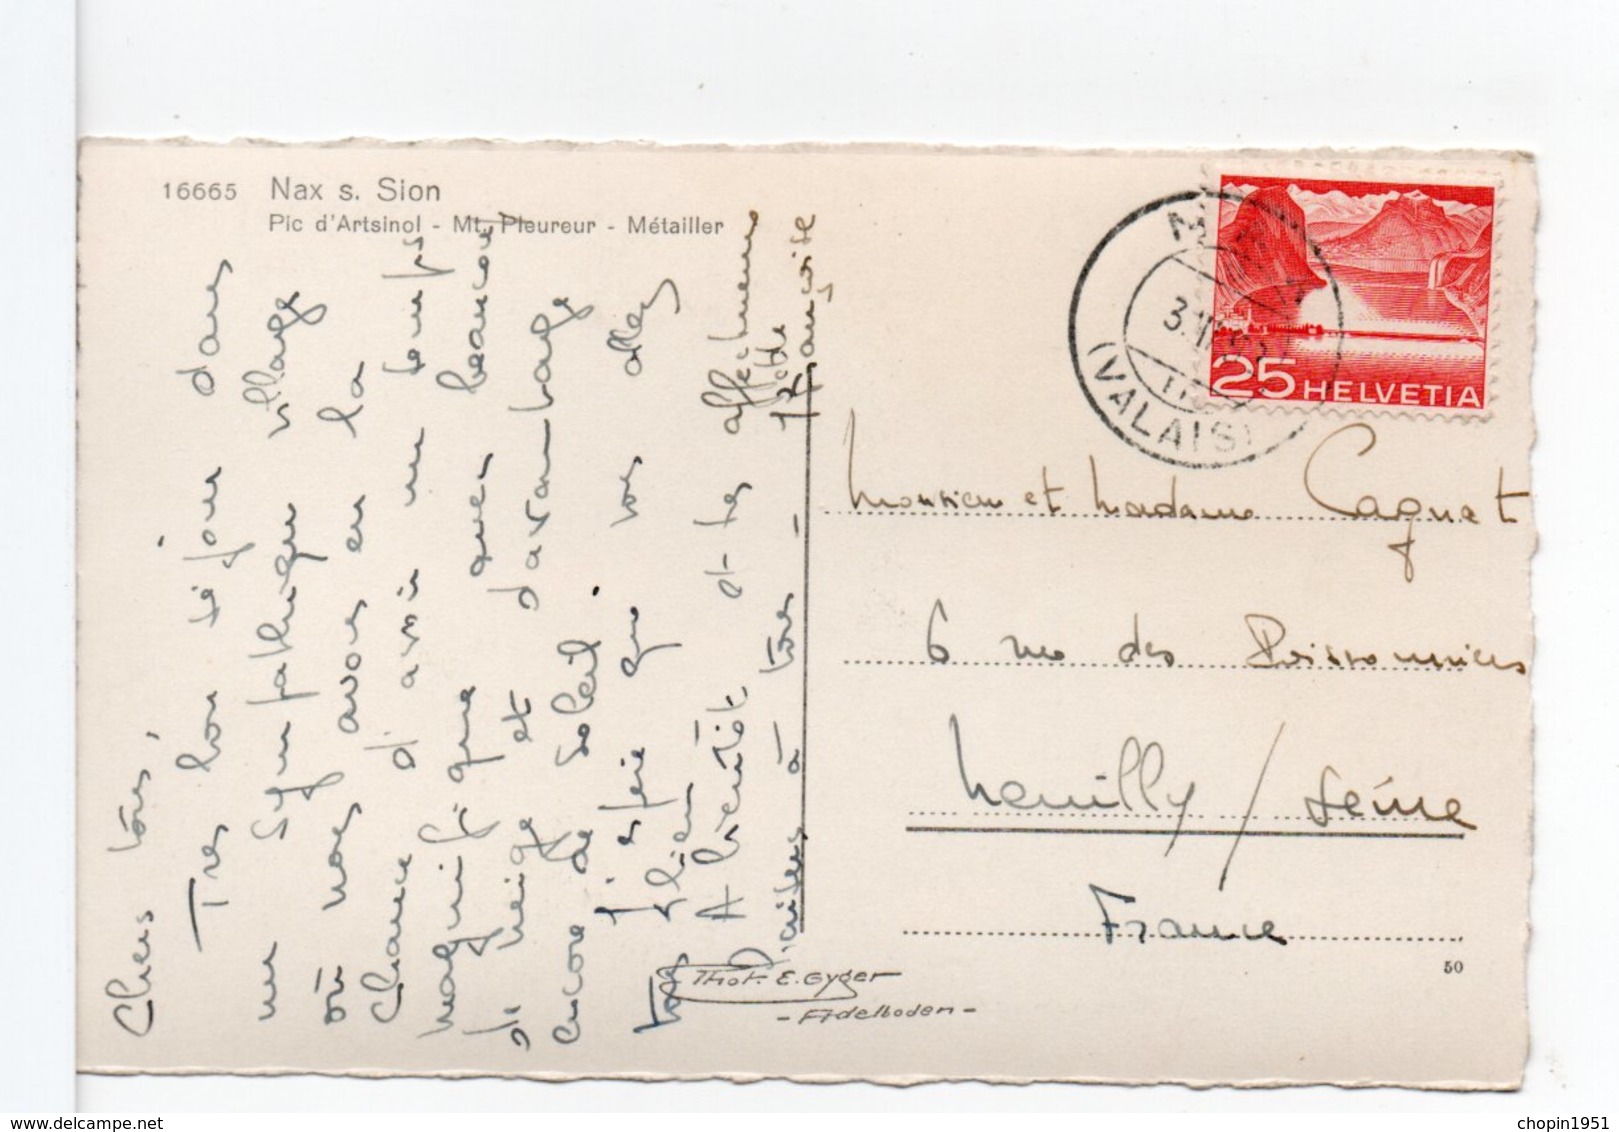 16665 Nax s. Sion
Pic d'Artsinol - Mt. Pleureur - Métailler
Chers tous,
Très bon séjour dans
un sympathique village
où nous avons eu la
chance d'avoir un temps
magnifique avec beaucoup
de neige et davantage
encore de soleil.
J'espère que vous allez
tous bien
A bientôt et très affectueuses
à tous -
Françoise
Phot. E. Gyger
- Adelboden -
(VALAIS)
25 HELVETIA
Monsieur et Madame Caquet
6 rue des Poissonniers
Neuilly / Seine
France
50
chopin1951